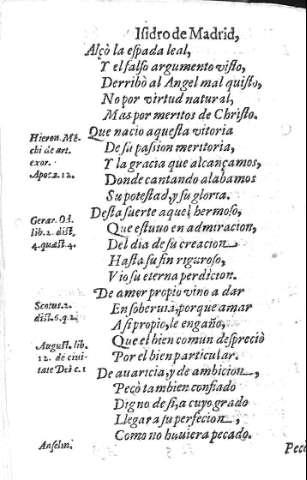 Isidro de Madrid,
Alçò la espada leal,
Y el falso argumento visto,
Derribò al Angel mal quisto,
No por virtud natural,
Mas por meritos de Christo.
Hieron. Mē-
chi de art.
exor.
Apoca. 12.
Que nacio aquesta vitoria
De su passion meritoria,
Y la gracia que alcançamos,
Donde cantando alabamos
Su potestad, y su gloria.
Gerar. Od.
lib. 2. dist.
4. quæst. 4.
Desta suerte aquel hermoso,
Que estuuo en admiracion,
Del dia de su creacion
Hasta su fin riguroso,
Vio su eterna perdicion.
Scotus. 2.
dist. 6. q. 2.
De amor propio vino a dar
En soberuia, porque amar
A si propio, le engaño,
August. lib.
12. de ciui-
tate Dei c. 1
Que el bien comun despreciò
Por el bien particular.
De auaricia, y de ambicion,
Pecò tambien confiado
Digno de si, a cuyo grado
Llegar a su perfecion,
Anselm.
Como no huuiera pecado.
Pecò